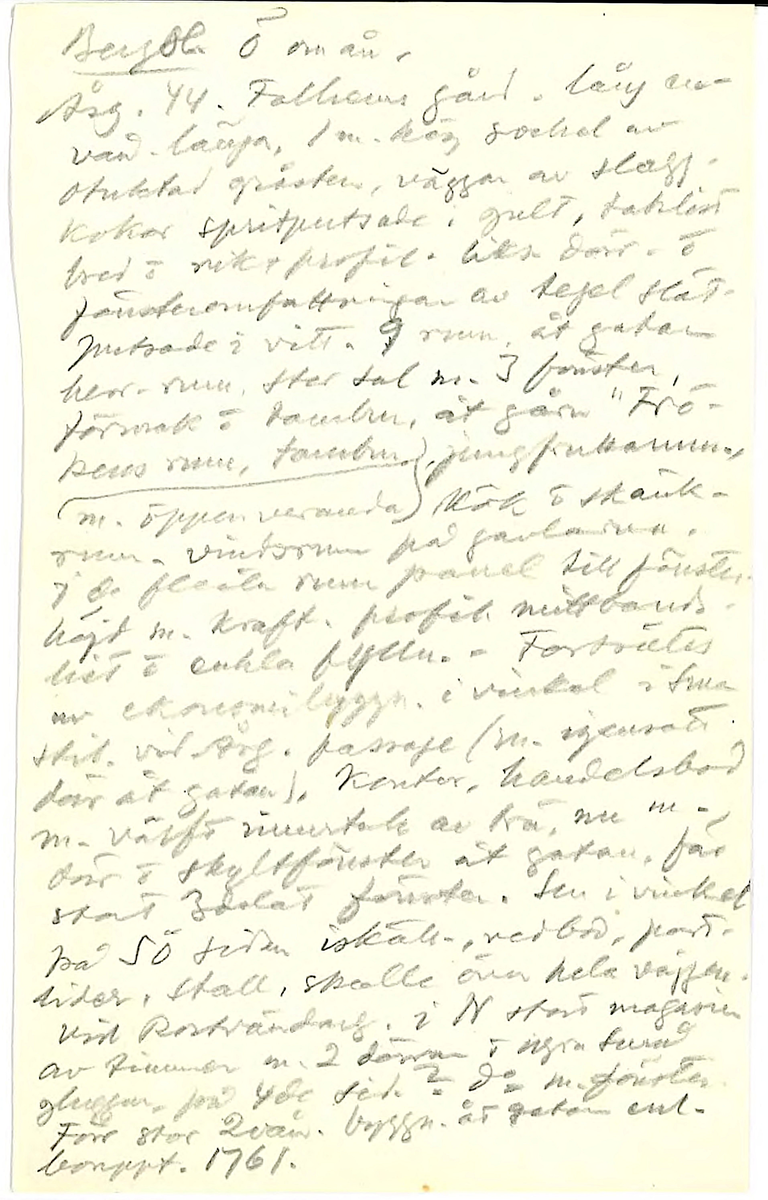 Bergsl. Ö om ån.
Årg. 44. Falkens gård. lång en-
vån. länga, 1 m. hög sockel av
otuktad gråsten, väggar av slagg-
kokor spritputsade i gult, taklist
bred o rik profil. liks. dörr- o
fönsteromfattningar av tegel slät-
putsade i vitt. 9 rum, åt gatan
herr-rum, stor sal m. 3 fönster,
förmak o tambur, åt gårn "Frö-
kens rum, tambur, jungfrukammare,
(m. öppen veranda) kök o skänk-
rum. vindsrum på gavlarna.
I de flesta rum panel till fönster-
höjd m. kraft. profil. mittbands-
list o enkla fylln. - Fortsättes
av ekonomibyggn. i vinkel i samma
stil. vid Årg. passage (m. igensatt
dörr åt gatan), kontor, handelsbod
m. välft innertak av trä, nu m.
dörr o skyltfönster åt gatan, förr
stort 3delat fönster. Sen i vinkel
på SÖ sidan iskäll., vedbod, port-
lider, stall, skulle över hela väggen.
vid Postgränd. i N stort magasin
av timmer m. 2 dörrar o
gluggar, på 4de sid. d:o m. fönster.
Förr stor 2vån. byggn. åt gatan enl.
bouppt. 1761.